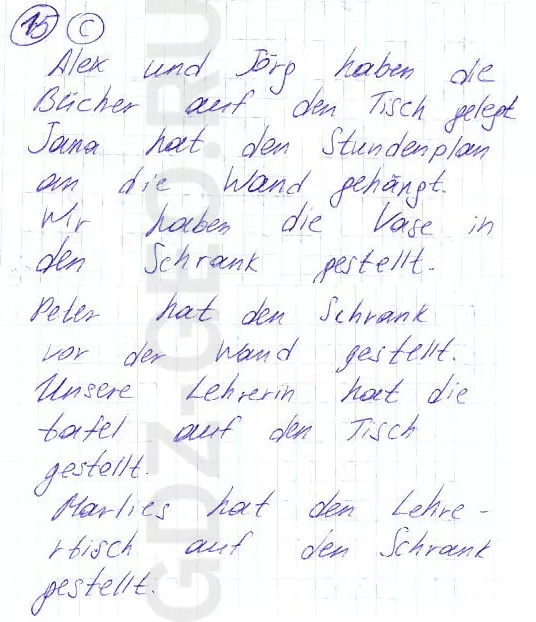 15 c
Alex und Jörg haben die
Bücher auf den Tisch gelegt
Jana hat den Stundenplan
an die Wand gehängt.
Wir haben die Vase in
den Schrank gestellt.
Peter hat den Schrank
vor der Wand gestellt.
Unsere Lehrerin hat die
tafel auf den Tisch
gestellt.
Marlies hat den Lehre-
rtisch auf den Schrank
gestellt.
GDZ-GEO.RU